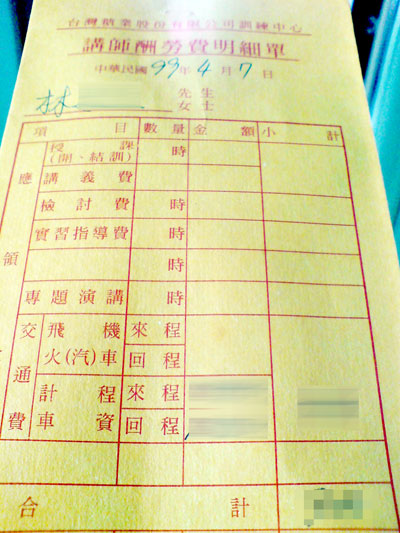 台灣糖業股份有限公司訓練中心
講師酬勞費明細單
中華民國 99 年 4 月 7 日
林 先生
女士
項目 數量 金額 小計
應領
授課
(開、結訓) 時
講義費
檢討費 時
實習指導費 時
時
專題演講 時
交通費
飛機 來程
火(汽)車 回程
計程 來程
車資 回程
合計